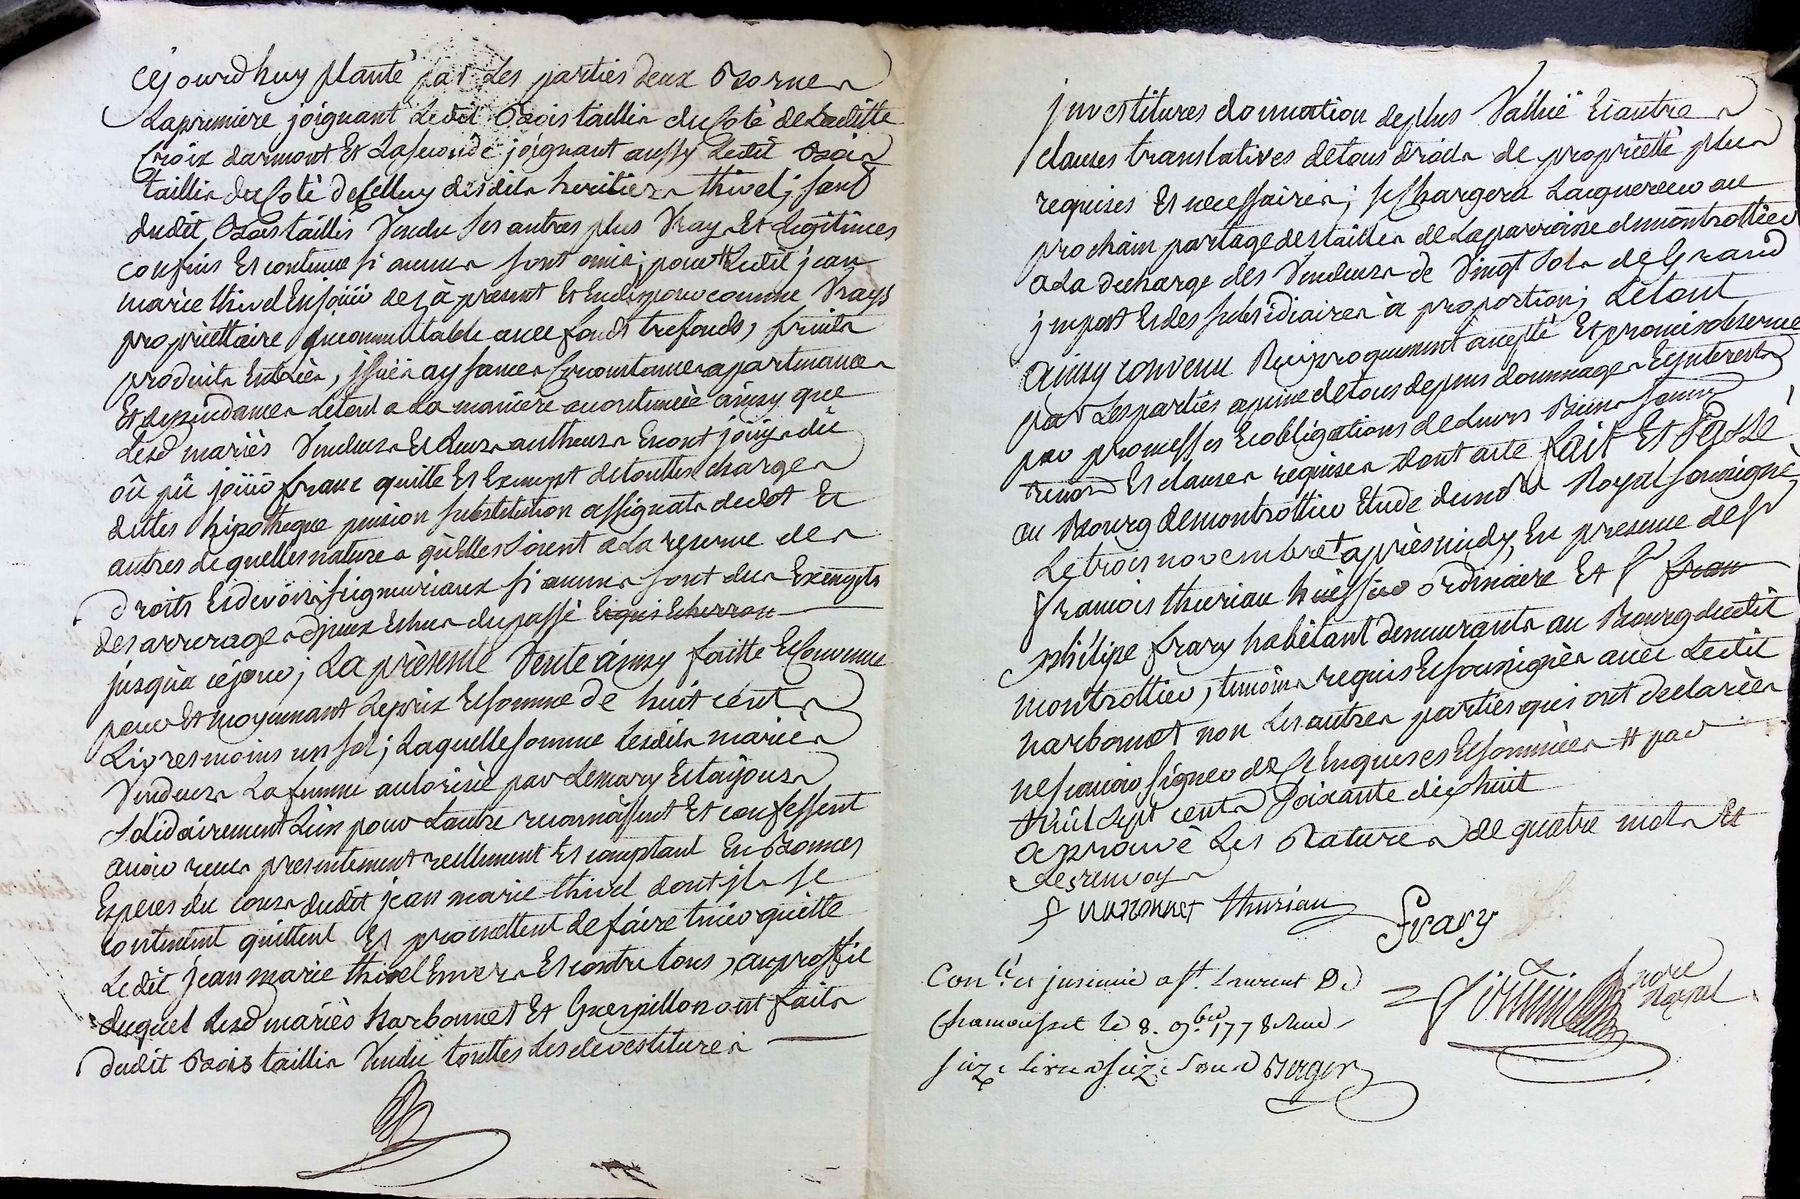 cejourdhuy planté par Les parties deux Bornes
La premiere joignant Ledit Bois taillis du Coté de Laditte
Croix darmont Et La seconde joignant aussy Ledit Bois
taillis du Coté de Celluy desdits heritiers thivel; sauf
dudit Bois taillis Vendu ses autres plus Vrays Et Legitimes
confins Et contenue si aucuns sont omis; pour Ledit jean
marie thivel En jouir des à present Et En disposer comme Vrays
propriettaire incommutable avec fonds trefonds, fruits
produits Entrées, issües aysances Circonstances apartenances
Et dependances Letout a La maniere accoutumèè ainsy que
Lesd mariés Vendeurs Et Leurs autheurs En ont joüy dû
où pû joüir franc quitte Et Exempt de touttes charges
dettes hipotheque pension substitution assignats de dot Et
autres de quelles natures qu'Elles soient a La reserve des
Droits Et devoirs seigneuriaux si aucuns sont dus Exempts
des arrerages d'jceux Echus du passé Et qui Echerron
jusqu'a ce jour; La présente Vente ainsy faitte Et Convenue
pour Et moyennant Le prix Et somme de huit cent
Livres moins un sol; Laquelle somme Lesdits mariès
Vendeurs La femme autorisée par Le mary Et tous deux
solidairement L'un pour L'autre reconnoissent Et confessent
avoir reçu presentement reellement Et comptant En Bonnes
Especes du cours dudit jean marie thivel dont jls se
contentent quittent Et promettent de faire tenir quitte
Ledit jean marie thivel Envers Et contre tous, au proffit
duquel Lesd mariès Narbonnet Et Guerpillon ont fait
dudit Bois taillis Vendu touttes Les devestitures
jnvestitures donnation de plus Vallüe Et autres
clauses translatives de tous droits de proprietté plus
requises Et necessaires; se Chargera Lacquereur au
prochain partage des tailles de La parroisse de montrottier
a La decharge des Vendeurs de Vingt Sols de Grand
jmpot Et des subsidiaires à proportion; Letout
ainsy convenu Reciproquement accepté Et promis observer
par Les parties a peine de tous depens dommages Et jnterests
par promesses Et obligations de Leurs Biens soumis
renon Et clauses requises Dont acte fait Et Passé
au Bourg de montrottier Etude du notre Royal soussigné
Le trois novembre après midy, En presence de sr
francois thuriau huissier ordinaire Et sr fran
philipe frary habitant demeurants au Bourg dudit
montrottier, temoins requis Et soussignès avec Ledit
narbonnet non Les autres parties qui ont declarèes
ne scavoir signer de ce Enquises Et sommèes # par
# mil sept cents soixante dix huit
aprouvé Les Ratures de quatre mots Et
Les renvoys
f narbonnet thuriau
frary
Conlé et jnsinué a st. Laurent De
Chamousset le 8. 9.bre 1778 Recu
seize Livres seize sous Berger
nore
Royal